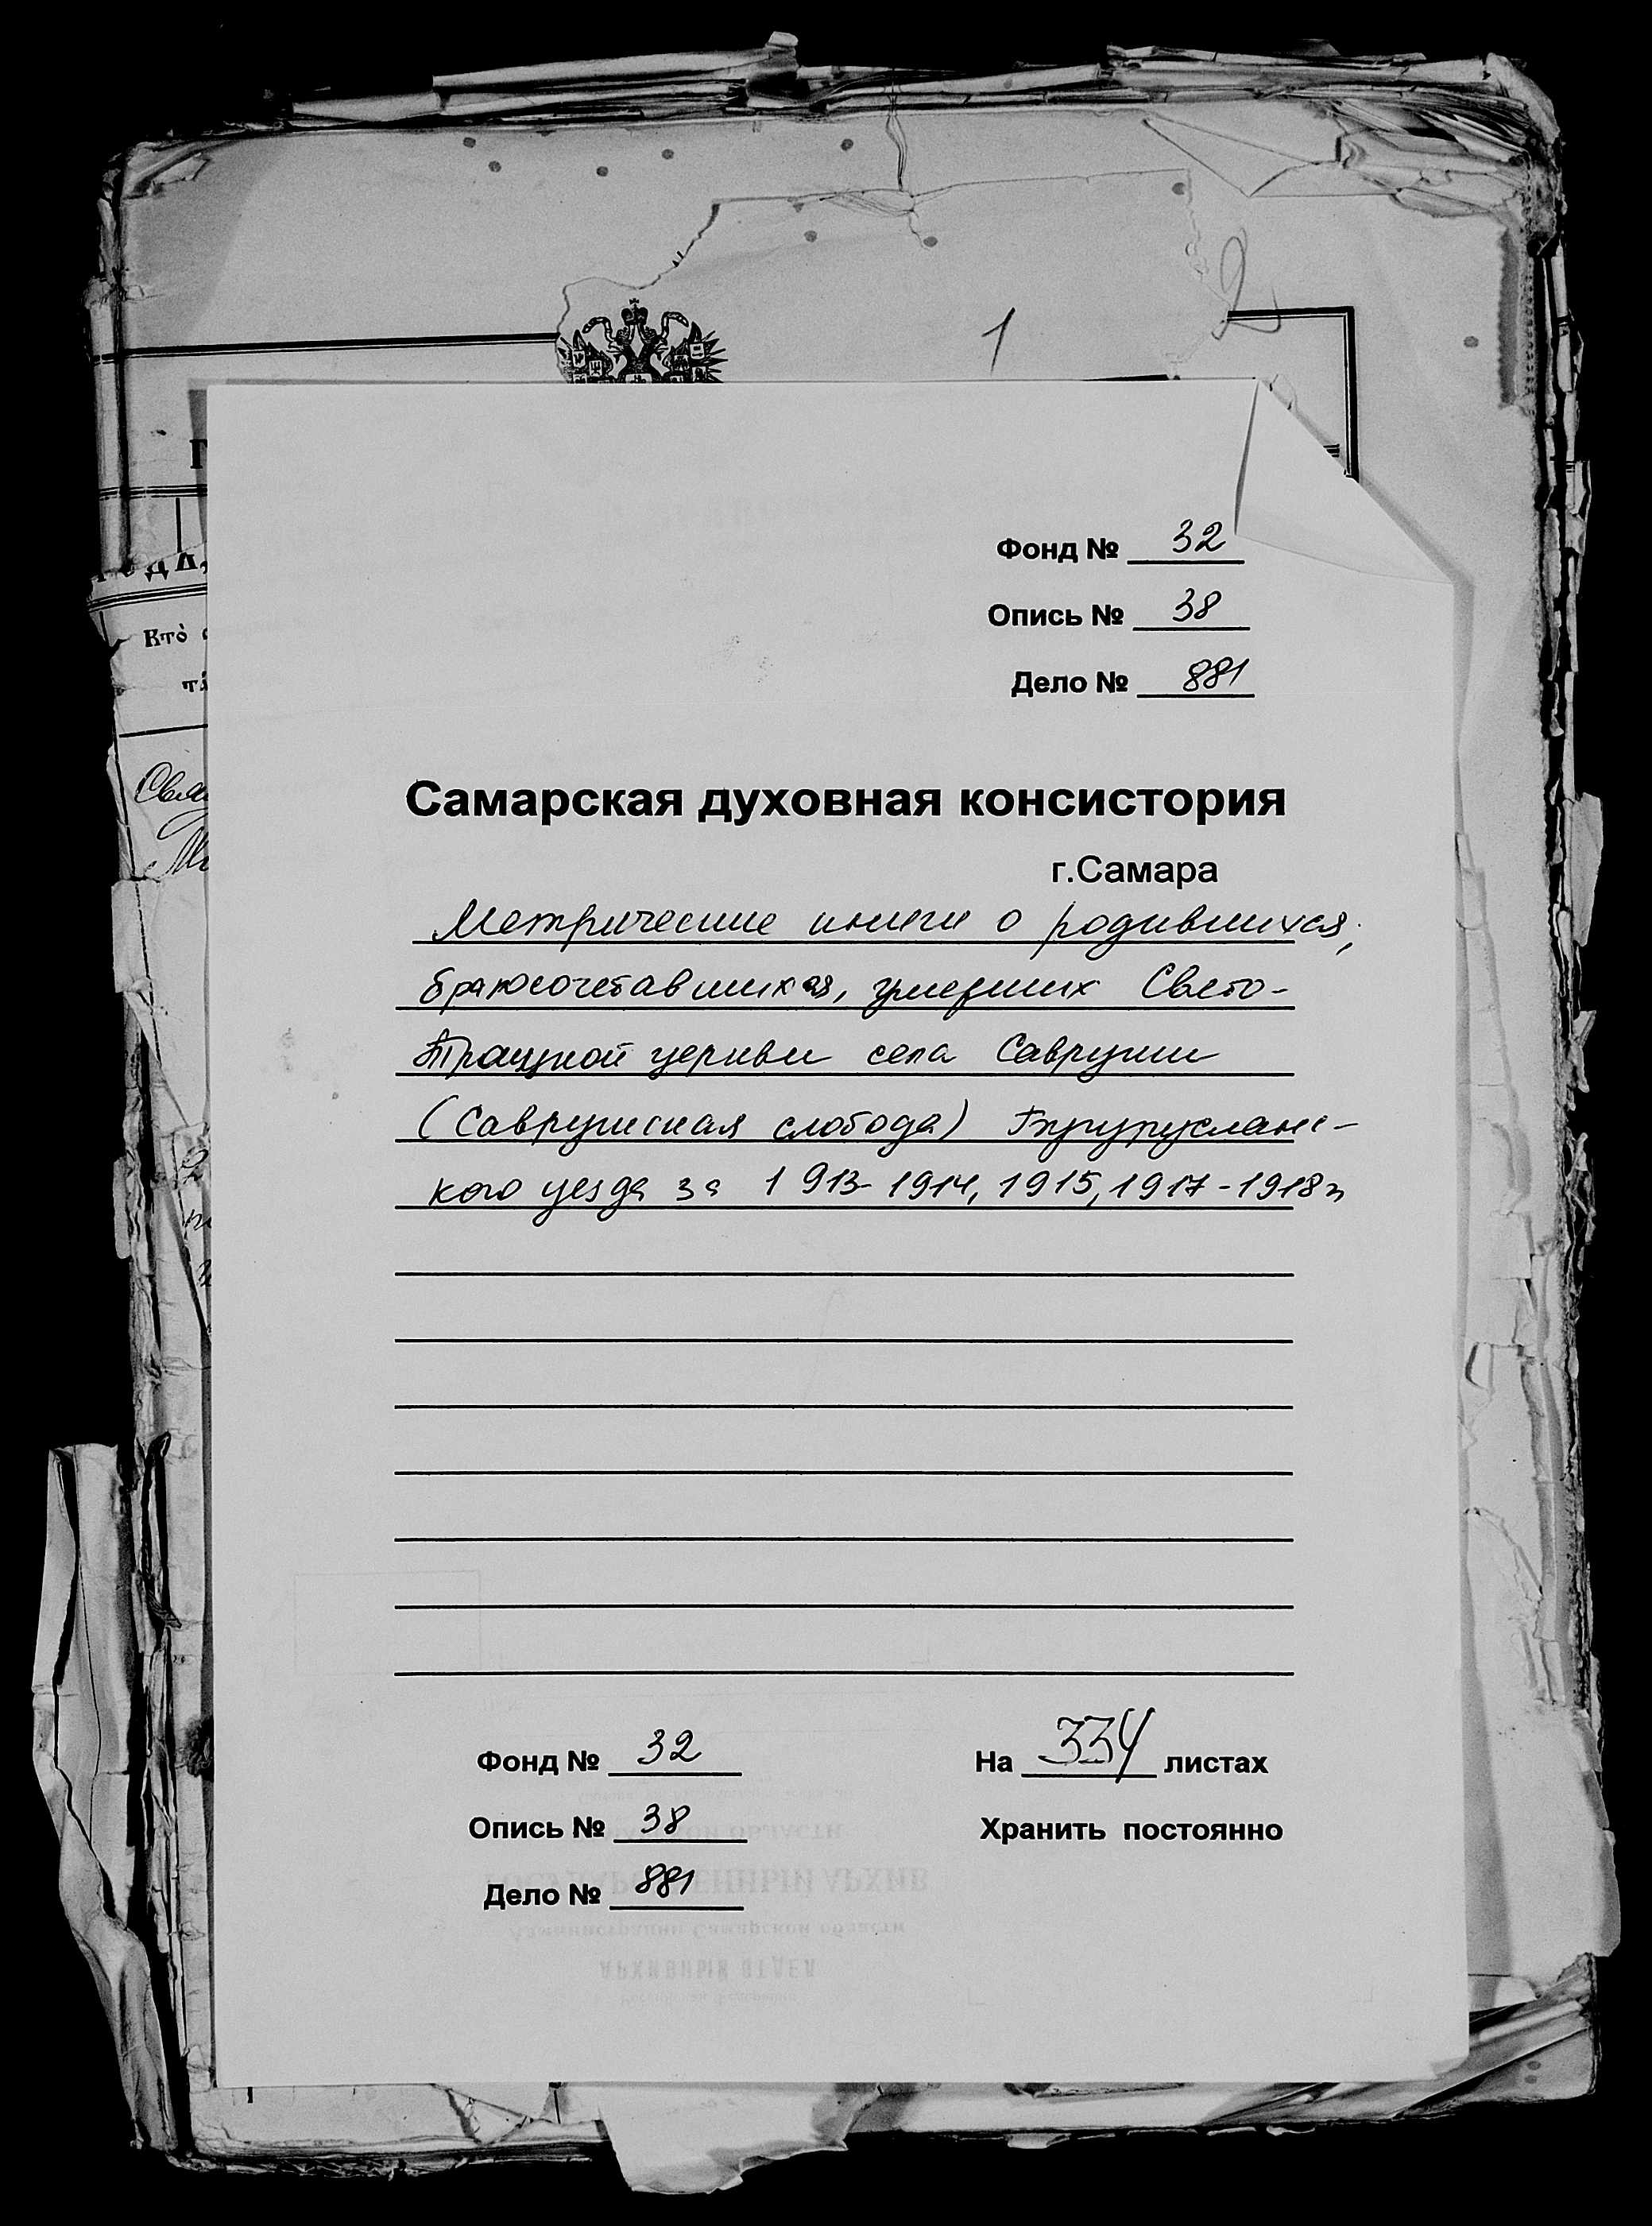 1
2
Фонд № 32
Опись № 38
Дело № 881
Самарская духовная консистория
г.Самара
Метрические книги о родившихся,
бракосочетавшихся, умерших Свято-
Троицкой церкви села Савруши
(Саврушская слобода) Бугурусланс-
кого уезда за 1913-1914, 1915, 1917-1918г
Фонд № 32
На 334 листах
Опись № 38
Хранить постоянно
Дело № 881